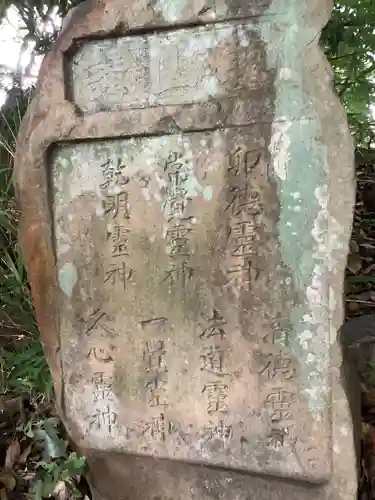 卯徳霊神
常覺霊神
乾明霊神
清徳霊神
法道霊神
一覺霊神
久心霊神